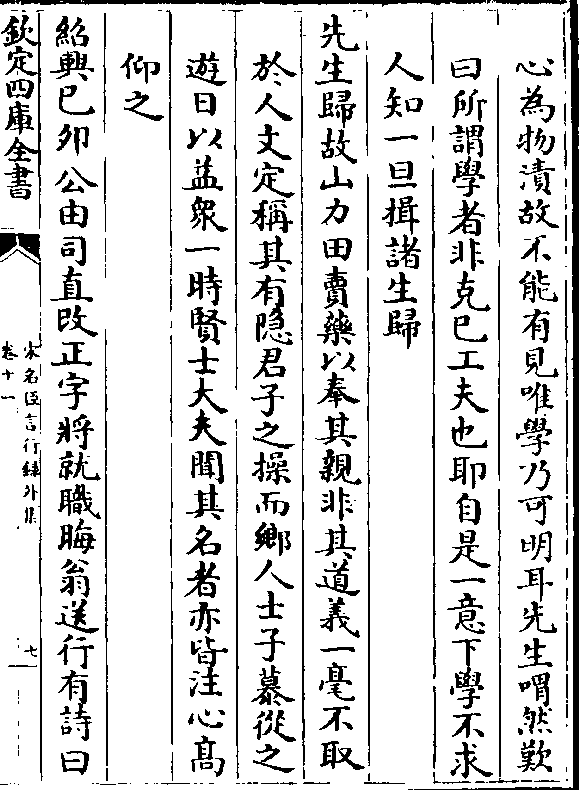 心為物漬故不能有見唯學乃可明耳先生喟然歎
曰所謂學者非克已工夫也耶自是一意下學不求
人知一旦揖諸生歸
先生歸故山力田賣藥以奉其親非其道義一毫不取
於人文定稱其有隐君子之操而鄉人士子慕從之
遊日以益衆一時賢士大夫聞其名者亦皆注心髙
仰之
紹興已卯公由司直改正字將就職晦翁送行有詩曰
欽定四庫全書
宋名臣言行録外集
卷十一
七